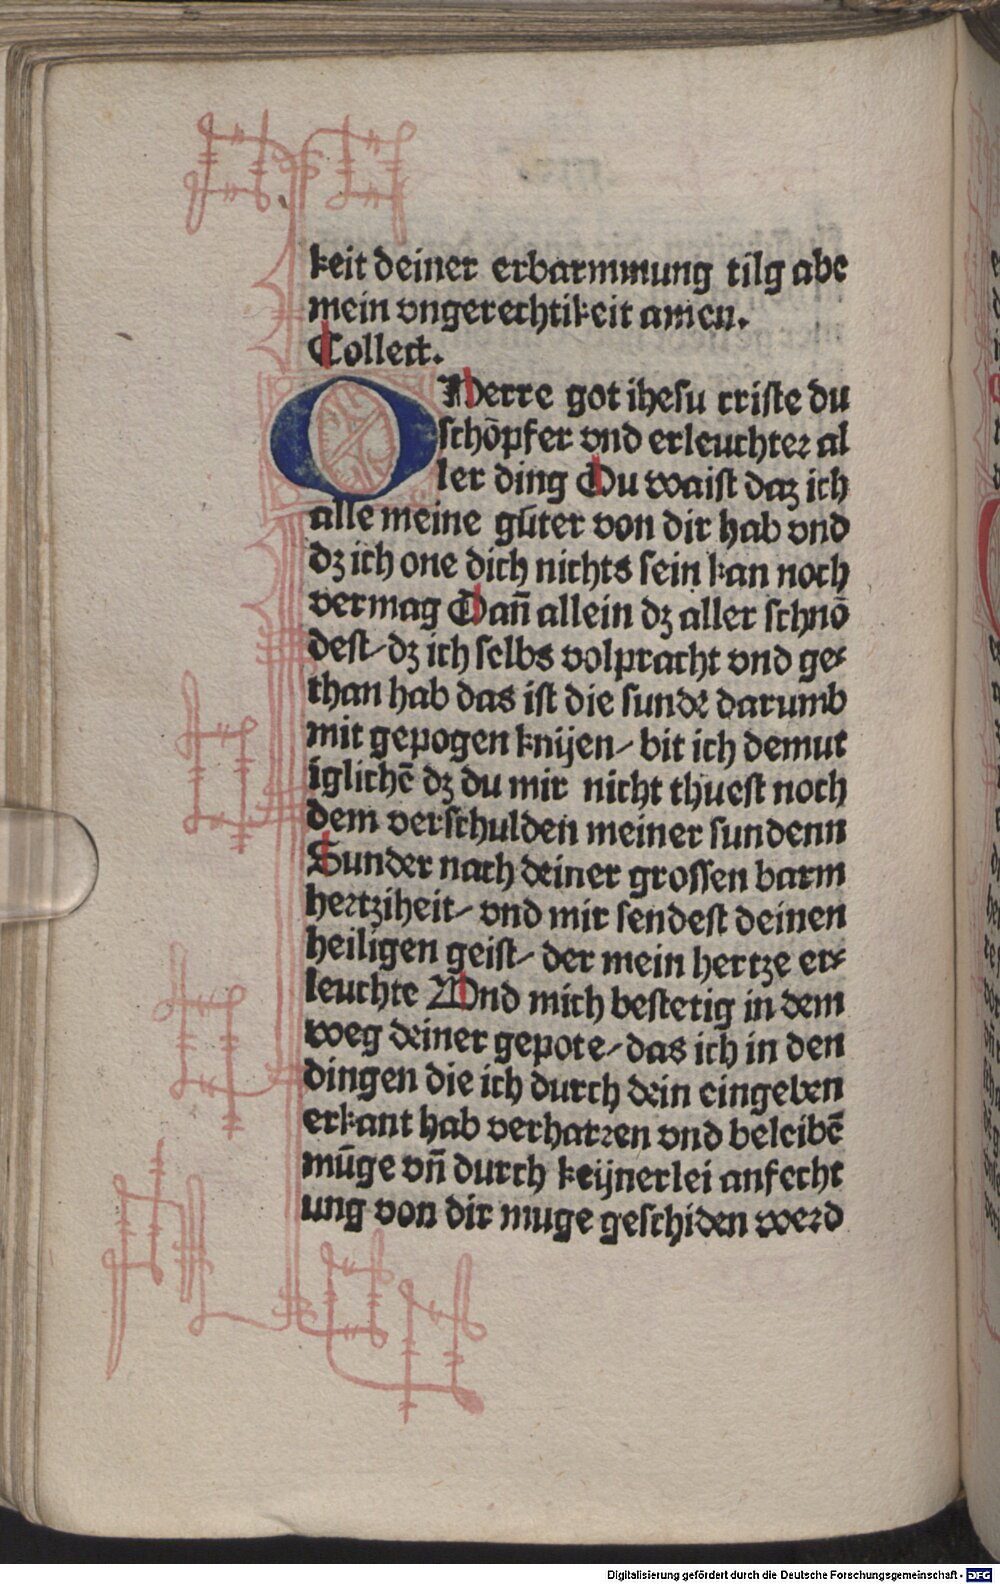 keit deiner erbarmmung tilg abe
mein vngerechtikeit amen.
Collect.
O Herre got ihesu criste du
schöpfer vnd erleuchter al
ler ding Du waist daz ich
alle meine gűter von dir hab vnd
dz ich one dich nichts sein kan noch
vermag Dañ allein dz aller schnö
dest/ dz ich selbs volpracht vnd ge⸗
than hab das ist die sunde darumb
mit gepogen knijen/ bit ich demut
iglichē dz du mir nicht thuest noch
dem verschulden meiner sundenn
Sunder nach deiner grossen barm
hertziheit/ vnd mir sendest deinen
heiligen geist/ der mein hertze er⸗
leuchte Vnd mich bestetig in dem
weg deiner gepote/ das ich in den
dingen die ich durch dein eingeben
erkant hab verharren vnd beleibē
műge vñ durch keijnerlei anfecht
ung von dir muge geschiden werd
Digitalisierung gefördert durch die Deutsche Forschungsgemeinschaft - DFG